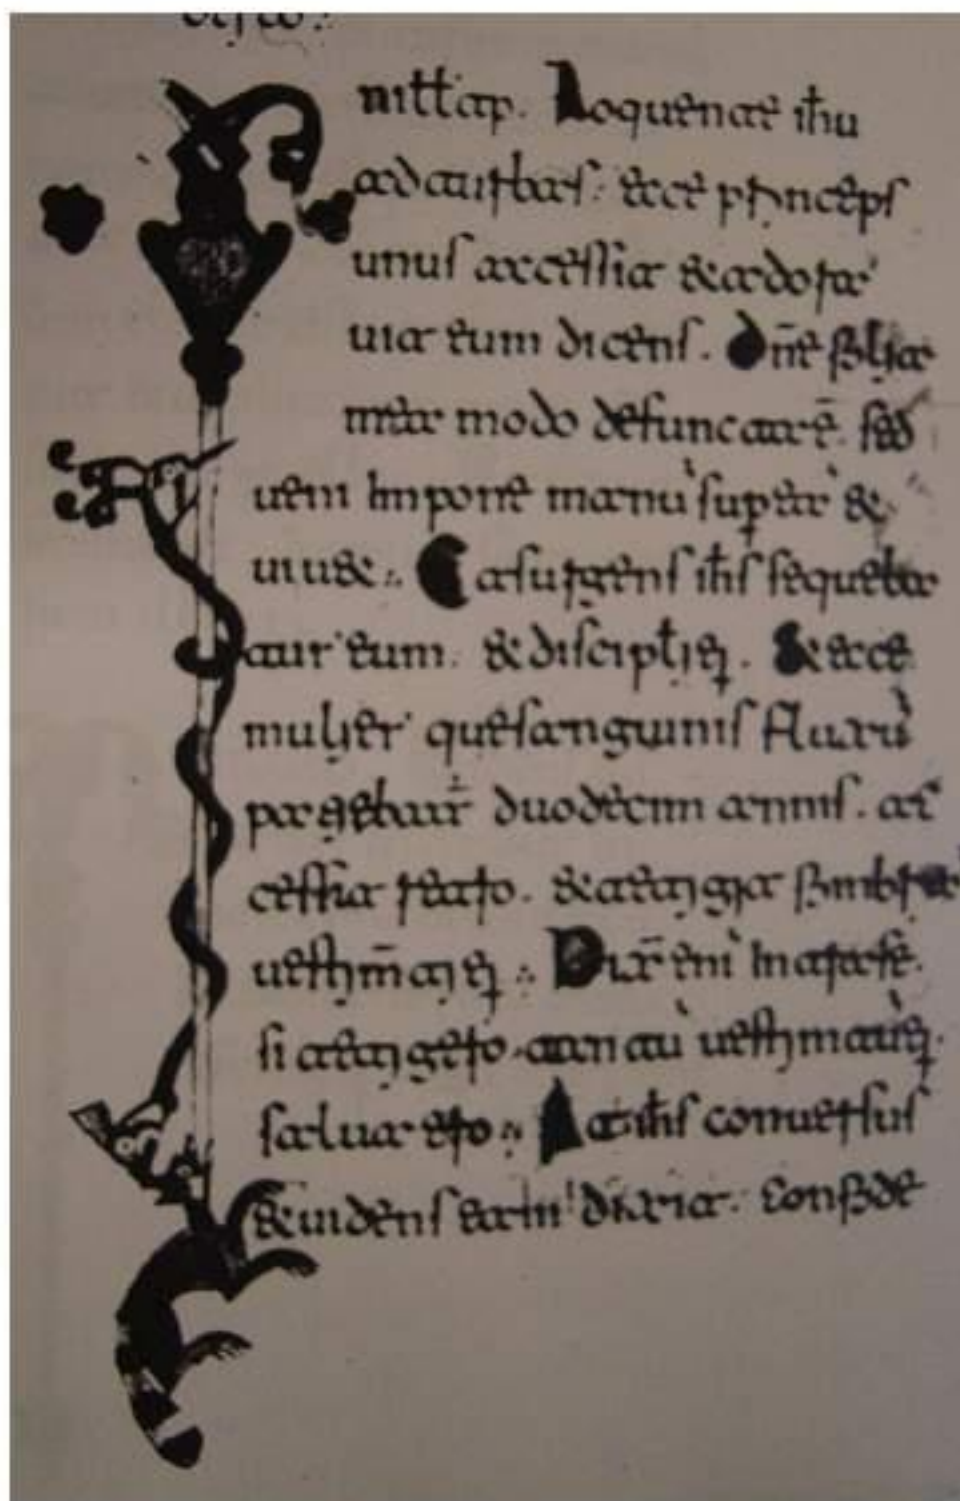 n ill tp. Loquente ih̄u
ad turbas. ecce princeps
unus accessit & adora
uit eum dicens. Dn̄e filia
mea modo defuncta ē. sed
ueni Impone manu̇ super eā &
uiu&. Et surgens ih̄s sequeba
tur eum. & discipl̄i ei. & ecce
mulier que sanguinis fluxu̇
patiebatur duodecim annis. ac
cessit retro. & tetigit fimbria
uestim̄ti ei. Dix̄ eni̇ Intra se.
si tetigero tantu̇ uestimtu̇ ei.
salua ero. At ih̄s conuersus
& uidens eam dixit. Confide